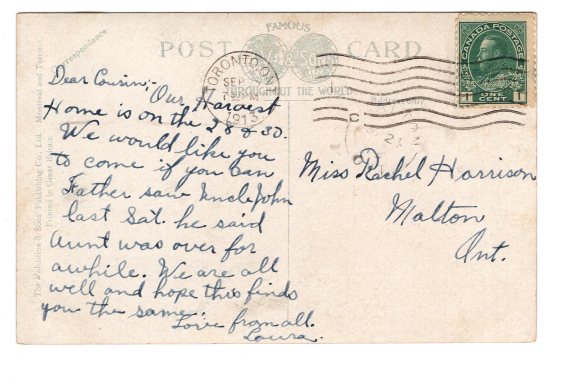 FAMOUS
POST CARD
& Sons
THROUGHOUT THE WORLD
Correspondence
TORONTO, ONT
SEP
1913
CANADA POSTAGE
1 ONE CENT 1
Dear Cousin;-
Our Harvest
Home is on the 28 & 30.
We would like you
to come if you can
Father saw Uncle John
last Sat. he said
Aunt was over for
awhile. We are all
well and hope this finds
you the same.
Love from all.
Laura.
Miss Rachel Harrison
Malton
Ont.
The Valentine & Sons Publishing Co., Ltd. Montreal and Toronto
Printed in Great Britain